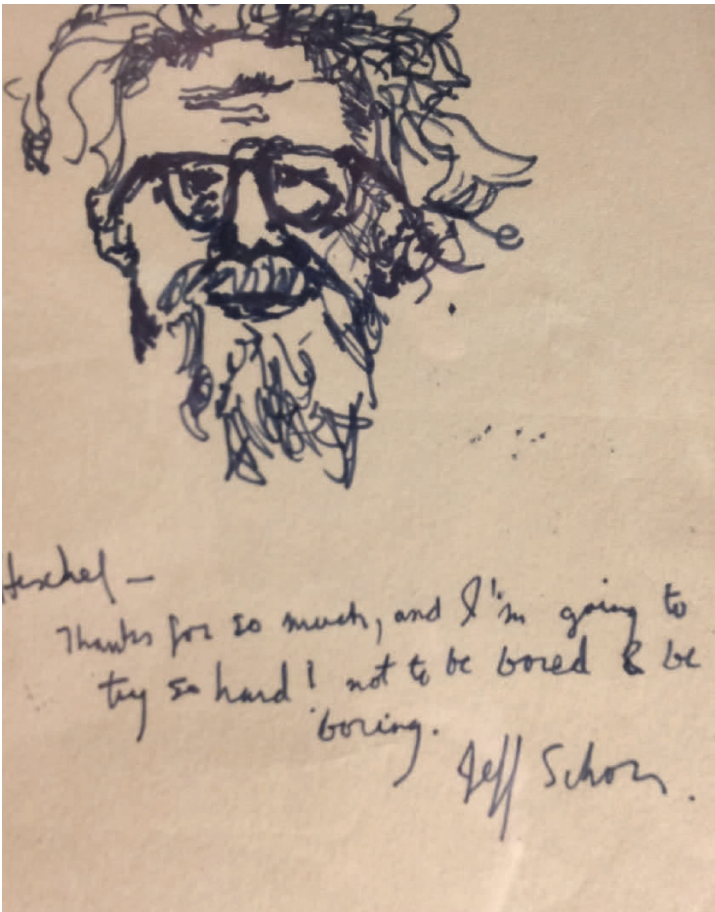 Herschel –
Thanks for so much, and I'm going to
try so hard! not to be bored & be
boring.
Jeff Schon.